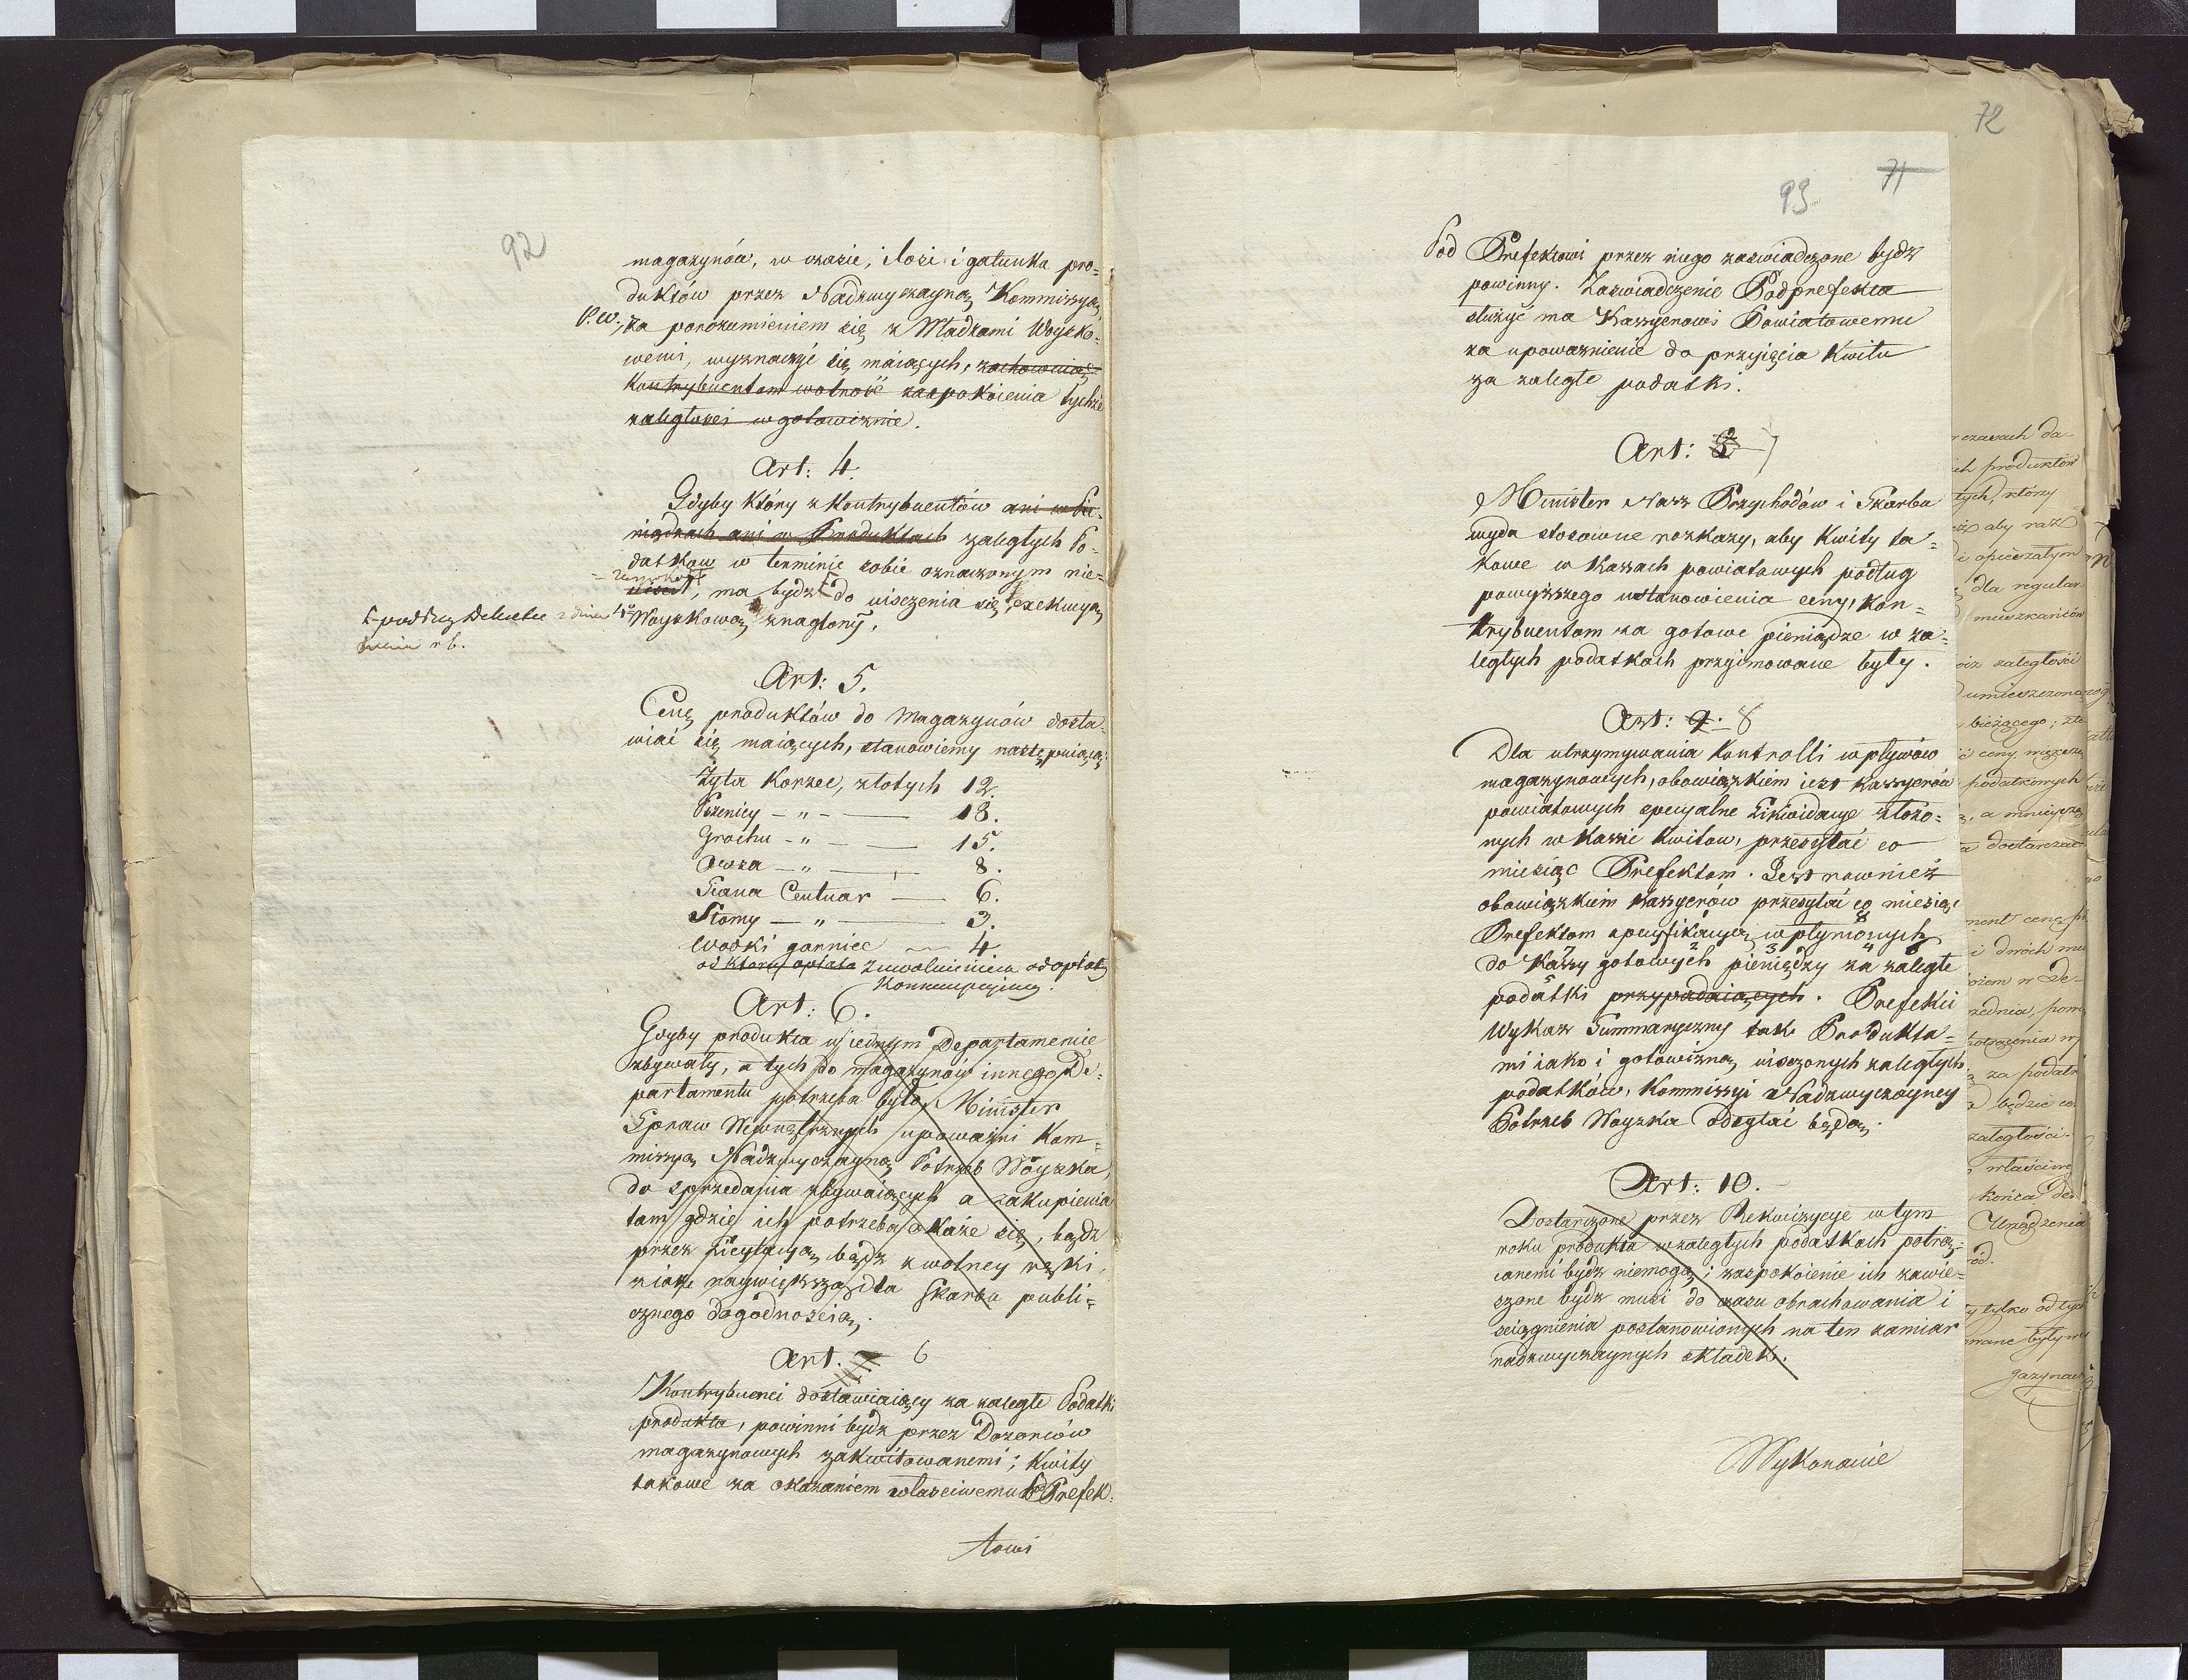 92
magazynów, w czasie, ilości i gatunku pro=
duktów przez Nadzwyczayną Kommissyą,
P.W. za porozumieniem się z Władzami Woysko=
wemi, wyznaczyć się maiących, zachowuiąc
Kontrybuentom wolność zaspokoienia tychże
zaległości w gotowiznie.
Art: 4.
Gdyby który z Kontrybuentów ani w Pie=
niądzach ani w Produktach zaległych Po=
datków w terminie sobie oznaczonym nie=
uiścił, ma bydź do uiszczenia się exekucyą
Woyskową znaglony.
podług Dekretu z dnia
r b.
Art: 5.
Cenę produktów do Magazynów dosta=
wiać się maiących, stanowiemy następuiącą:
Żyta Korzec, złotych 12.
Pszenicy — „ — 18.
Grochu — „ — 15.
Owsa — „ — 8.
Siana Centnar — 6.
Słomy — „ — 3.
Wódki garniec — 4
od którey opłata z uwolnieniem od opłaty
Konsumpcyiney.
Art: 6.
Gdyby produkta w iednym Departamencie
zbywały, a tych do magazynów innego De=
partamentu potrzeba było, Minister
Spraw Wewnętrznych upoważni Kom=
missyą Nadzwyczayną Potrzeb Woyska,
do sprzedania zbywaiących a zakupienia
tam gdzie ich potrzeba okaże się, bądź
przez licytacyą bądź z wolney ręki,
z iak naywiększą dla Skarbu publi=
cznego dogodnością.
Art. 7 6
Kontrybuenci dostawiaiący za zaległe Podatki
produkta, powinni bydź przez Dozorców
magazynowych zakwitowanemi; Kwity
takowe za okazaniem właściwemu Pod Prefek=
towi
72
71
93
Pod Prefektowi przez niego zaświadczone bydź
powinny. Zaświadczenie Podprefekta
służyć ma Kassyerowi Powiatowemu
za upoważnienie do przyięcia Kwitu
za zaległe podatki.
Art: 8 7
Minister Nasz Przychodów i Skarbu
wyda stosowne rozkazy, aby Kwity ta=
kowe w Kassach powiatowych podług
powyższego ustanowienia ceny, Kon=
trybuentom za gotowe pieniądze w za=
ległych podatkach przyimowane były.
Art: 9. 8
Dla utrzymywania Kontrolli wpływów
magazynowych, obowiązkiem iest Kassyerów
powiatowych specyalne Likwidacye złożo=
nych w Kassie Kwitów, przesyłać co
miesiąc Prefektom. Jest również
obowiązkiem Kassyerów przesyłać co miesiąc
Prefektom specyfikacyą wpłynionych
do Kassy gotowych pieniędzy za zaległe
podatki przypadaiących. Prefekci
Wykaz Summaryczny tak Produkta=
mi iako i gotowizną uiszczonych zaległych
podatków, Kommissyi Nadzwyczayney
Potrzeb Woyska odsyłać będą.
Art: 10.
Dostarczone przez Rekwizycye w tym
roku produkta w zaległych podatkach potrą=
conemi bydź niemogą; zaspokoienie ich zawie=
szone bydź musi do czasu obrachowania i
ściągnienia postanowionych na ten zamiar
nadzwyczaynych składek.
Wykonanie